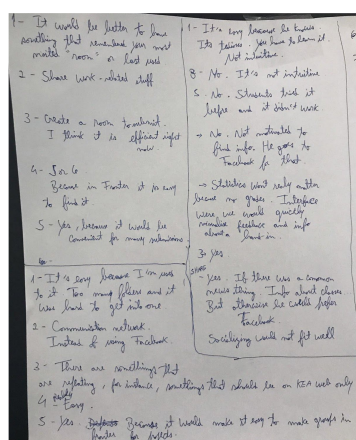 1 - It would be better to have
something that remembered your most
visited "room" or last used
2 - Share work-related stuff
3 - Create a room
I think it is efficient right
now.
4 - 5 or 6
Because in Fronter it is easy
to find it
5 - Yes, because it would be
convenient for many submissions.
6 -
1 - It's easy because I'm used
to it. Too many folders and it
was hard to get into one.
2 - Communication network.
Instead of using Facebook.
3 - There are somethings that
are repeating, for instance, somethings that should be on KEA web only
4 - Easy.
5 - Yes. Because it would make it easy to make groups in
fronter for projects.
1 - It's easy because he knows
Its You have to learn it.
Not intuitive.
8 - No. It's not intuitive
5 - No. Students tried it
before and it didn't work
→ No. Not motivated to
find info. He goes to
Facebook for that.
→ Statistics won't really matter
because no grades. Interface
were we could quickly
visualize feedback and info
about a hand in.
3 Yes
SHARE
- Yes. If there was a common
news thing. Info about classes
But otherwise he would prefer
Facebook.
Socializing would not fit well
6